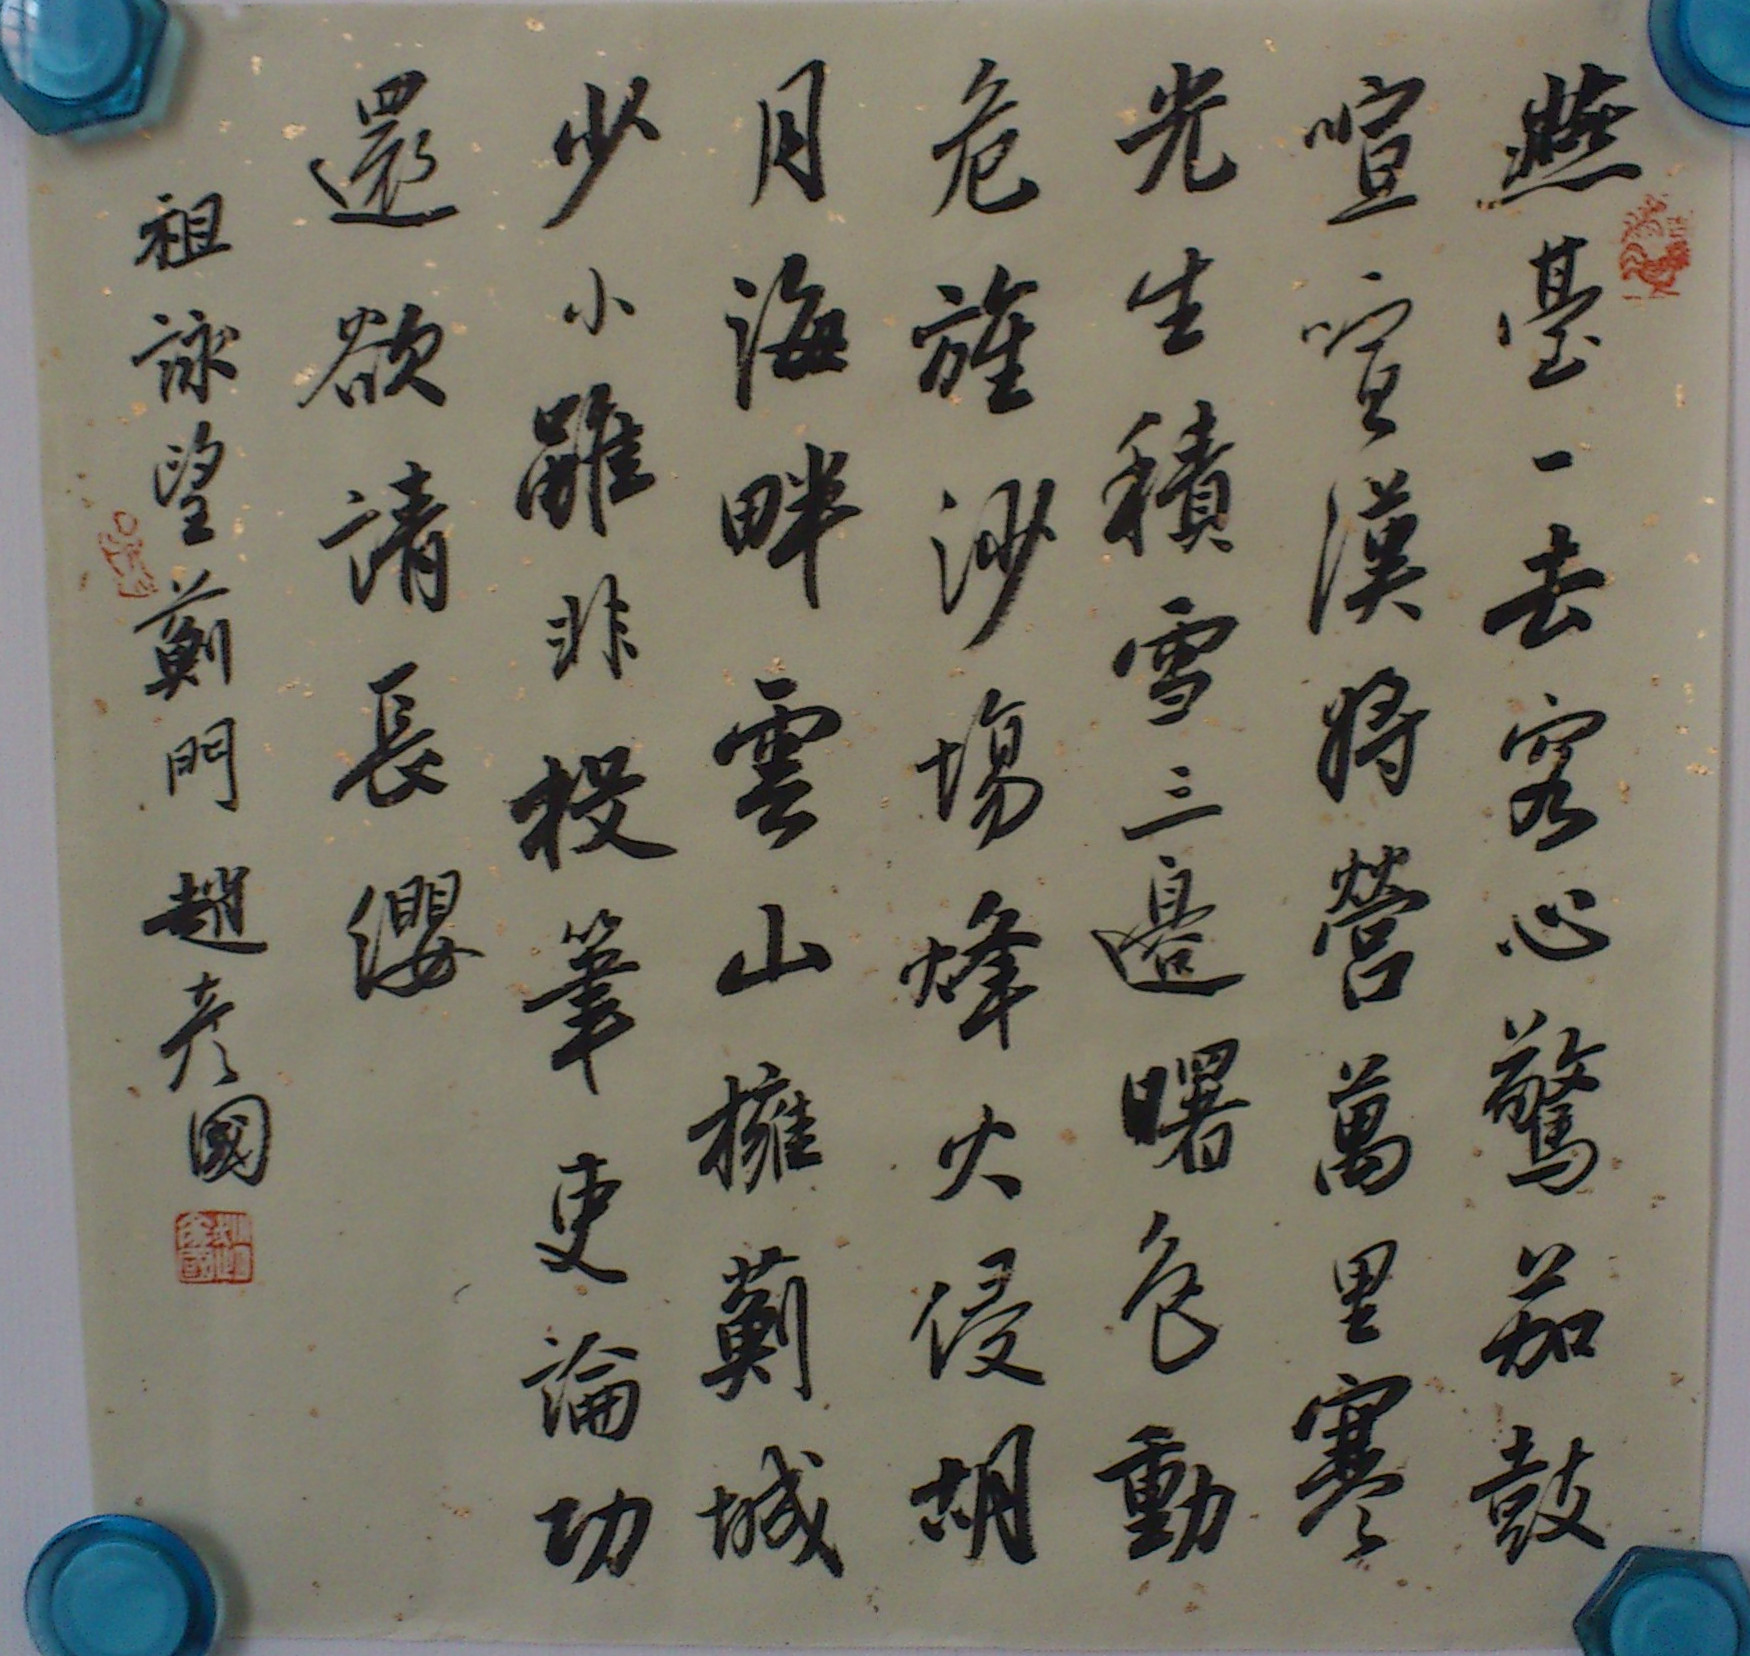 燕臺一去客心驚茄鼓
喧喧漢將營萬里寒
光生積雪三邊曙色動
危旌沙場烽火侵胡
月海畔雲山擁薊城
少小雖非投筆吏論功
還欲請長纓
祖詠望薊門 趙彦國